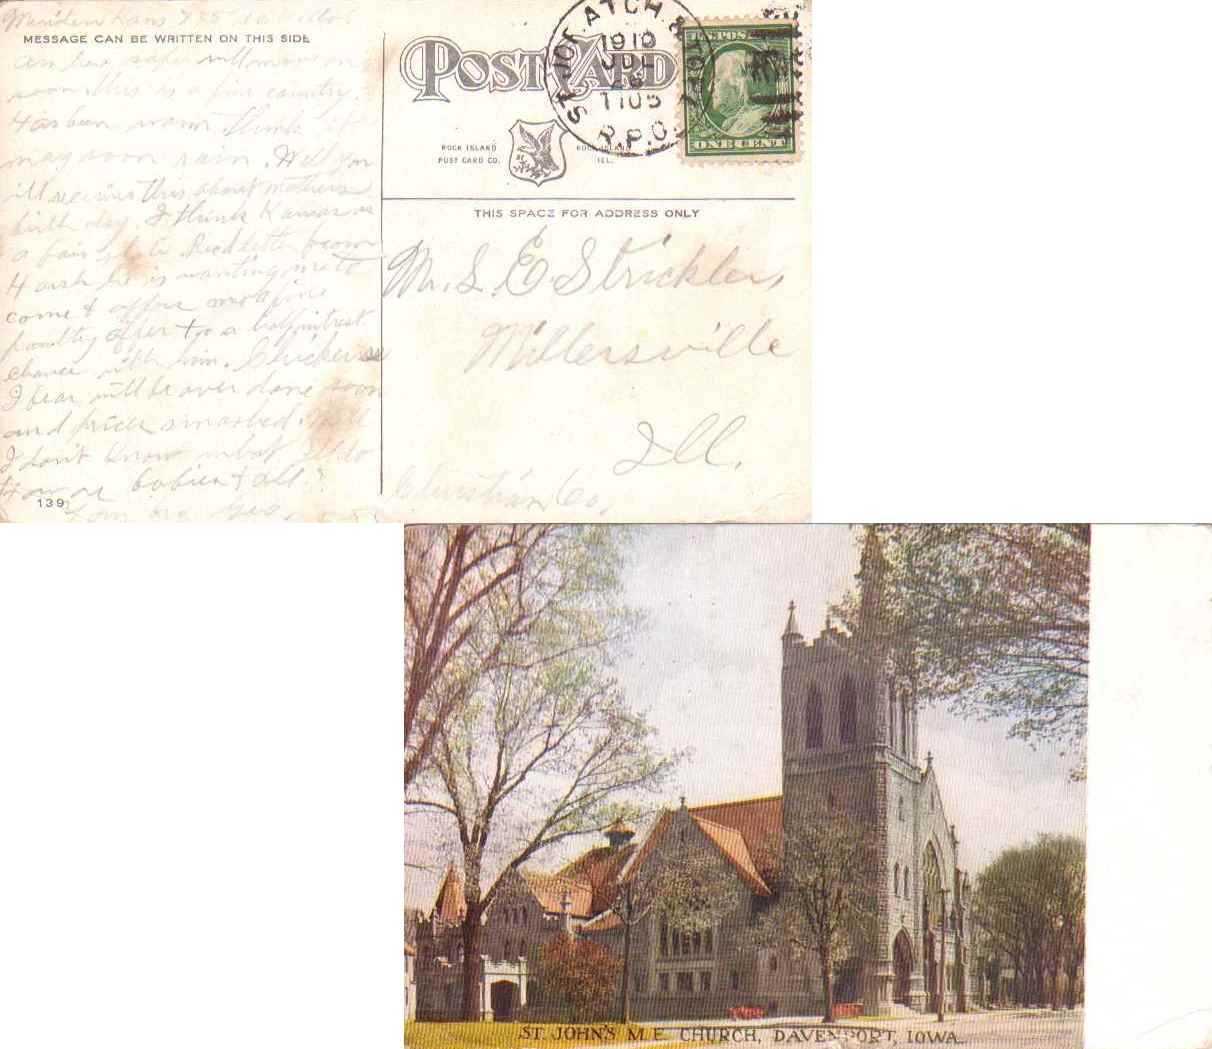 Meriden Kans 7 25
MESSAGE CAN BE WRITTEN ON THIS SIDE
am here safe will move on
soon. this is a fine country.
Has been warm think it
may soon rain. Well you
ill receive this about mothers
birth day. I think Kansas is
a fair state Recd letter from
he is wanting me to
come & offers
poultry after to a half intrest
chance with him. Chickens
I fear will be over done soon
and prices smashed. Well
I don't know what I'll do
How are babies & all?
Geo.
139
POST CARD
ROCK ISLAND
POST CARD CO.
ROCK ISLAND
ILL.
ST. JO. ATCH &
1910
JUL
26
1105
R.P.O.
U.S. POS
ONE CENT
THIS SPACE FOR ADDRESS ONLY
Mr. S. E. Strickler,
Millersville
Ill.
Christian Co.
ST. JOHN'S M.E. CHURCH, DAVENPORT, IOWA.